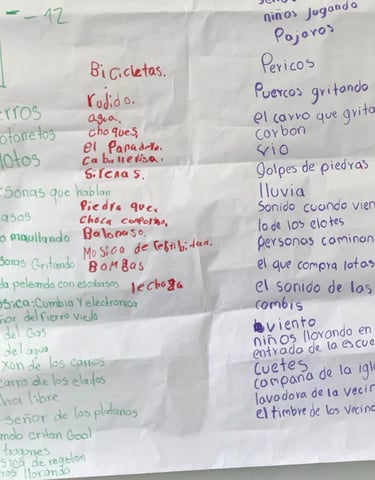 - - 12
erros
otonetos
lotos
sonas que hablan
asos
o maullando
sonas Gritando
da peleando con escobasos
osica: Cumbia y electronica
ñor del fierro viejo
del Gas
del agua
xon de los carros
carro de los elados
cha libre
señor de los platanos
ando critan Gool
tragones
sica de regeton
ros llorando
Bicicletas.
rujido.
agua.
choques.
el Panadero.
Caballeriza.
Sirenas.
Piedra que
choca con
Balonaso.
Musica de festibidad.
BOMBAS
lechuga
niños jugando
Pajaros
Pericos
Puercos gritando
el carro que grita
carbon
rio
golpes de piedras
lluvia
Sonido cuando vien
lo de los elotes
personas caminan
el que compra latas
el sonido de las
combis
viento
niños llorando en
entrada de la escue
cuetes
campana de la igl
lavadora de la vecin
el timbre de los vecino